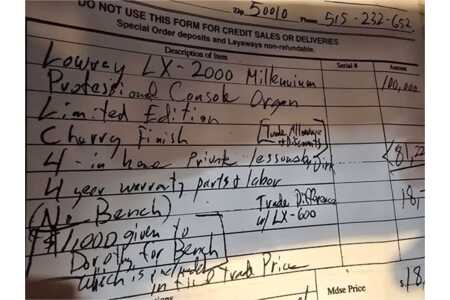 Zip 50010 Phone 515-232-652
DO NOT USE THIS FORM FOR CREDIT SALES OR DELIVERIES
Special Order deposits and Layaways non-refundable.
Description of Item Serial # Amount
Lowrey LX-2000 Millennium 100,000
Professional Console Organ
Limited Edition
Cherry Finish [Trade Allowance + Discounts]
4 - in home private lessons by <81,22
4 year warranty parts & labor
(No Bench) Trade Difference w/ LX-600 18,7
$4,000 given to
Dorothy for Bench
which is included
in this Trade Price
Mdse Price $18,